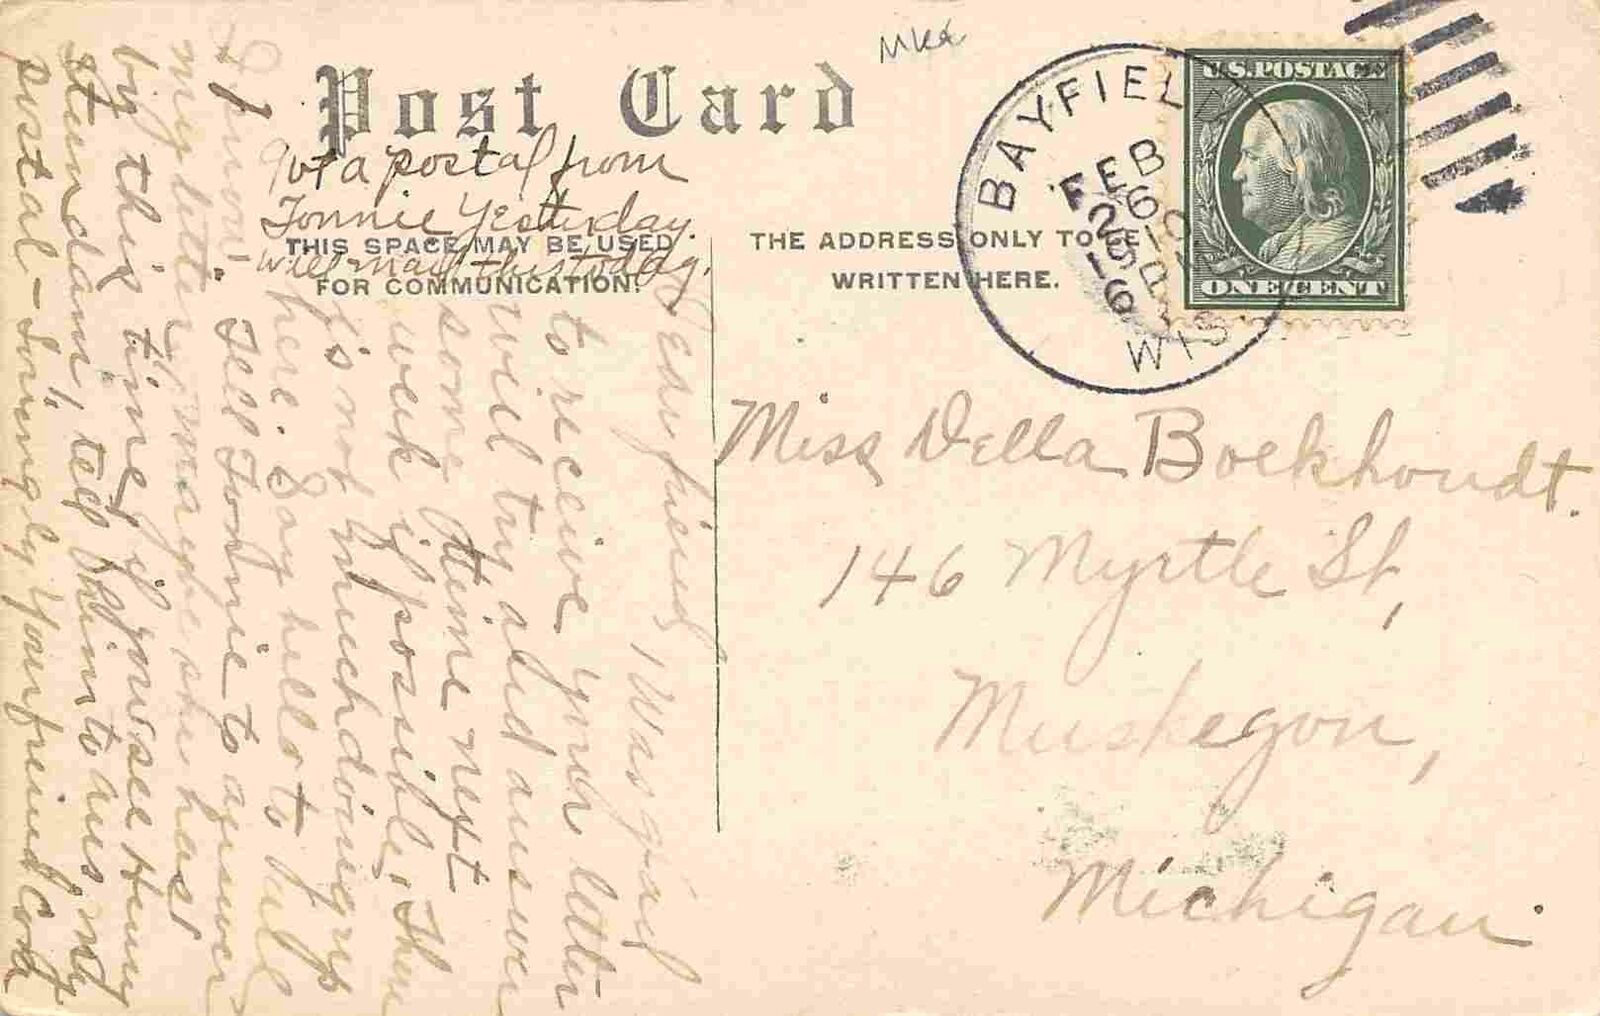 Post Card
THIS SPACE MAY BE USED
FOR COMMUNICATION.
THE ADDRESS ONLY TO BE
WRITTEN HERE.
BAYFIELD
FEB
26
1910
WIS
U.S. POSTAGE
ONE CENT
Miss Della Boekhoudt.
146 Myrtle St,
Muskegon,
Michigan.
Dear friend, I was glad
to receive your letter
will try and answer
some time next
week if possible, There
is not much doing up
here. Say hello to
Tell Tonnie to answer
my letter maybe she has
by this time, if you see Henry
tell him to ans my
postal - Lovingly Your friend Cora
Got a postal from
Tonnie Yesterday.
Will mail this today.